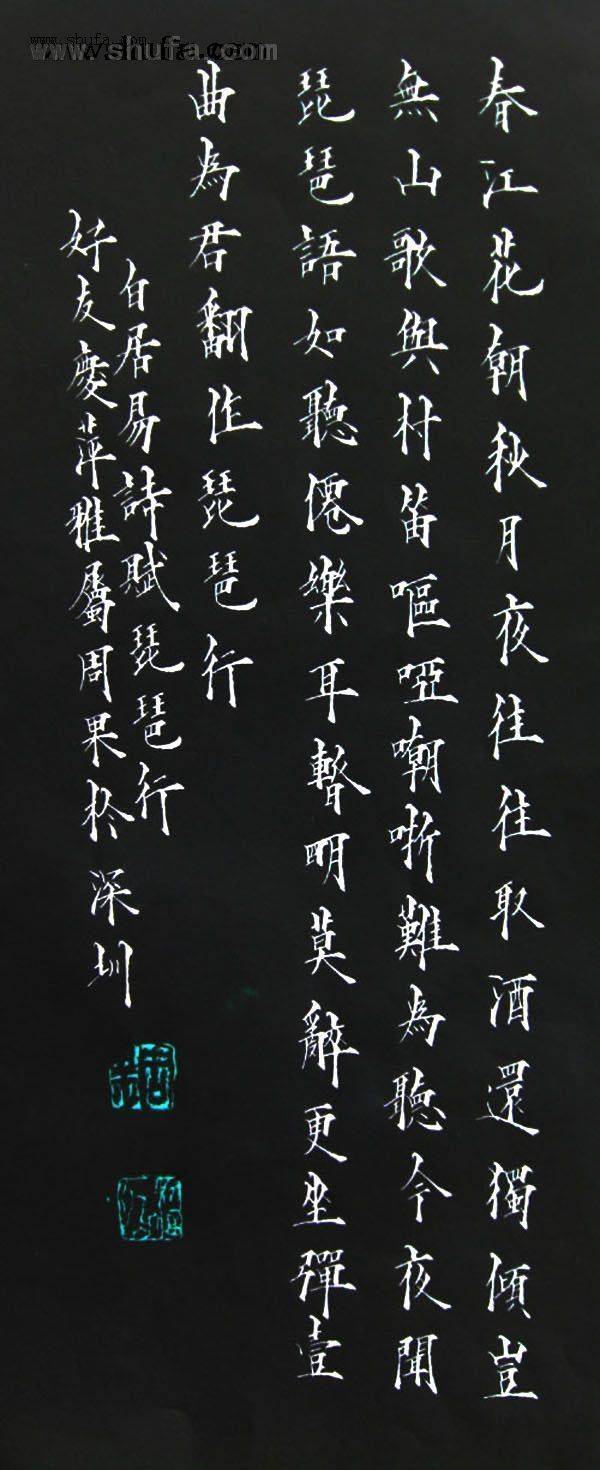 春江花朝秋月夜往往取酒還獨傾豈
無山歌與村笛嘔啞嘲哳難為聽今夜聞
琵琶語如聽僊樂耳暫明莫辭更坐彈壹
曲為君翻作琵琶行
白居易詩賦琵琶行
好友慶萍雅屬周果於深圳
www.shufa.com
www.shufa.com